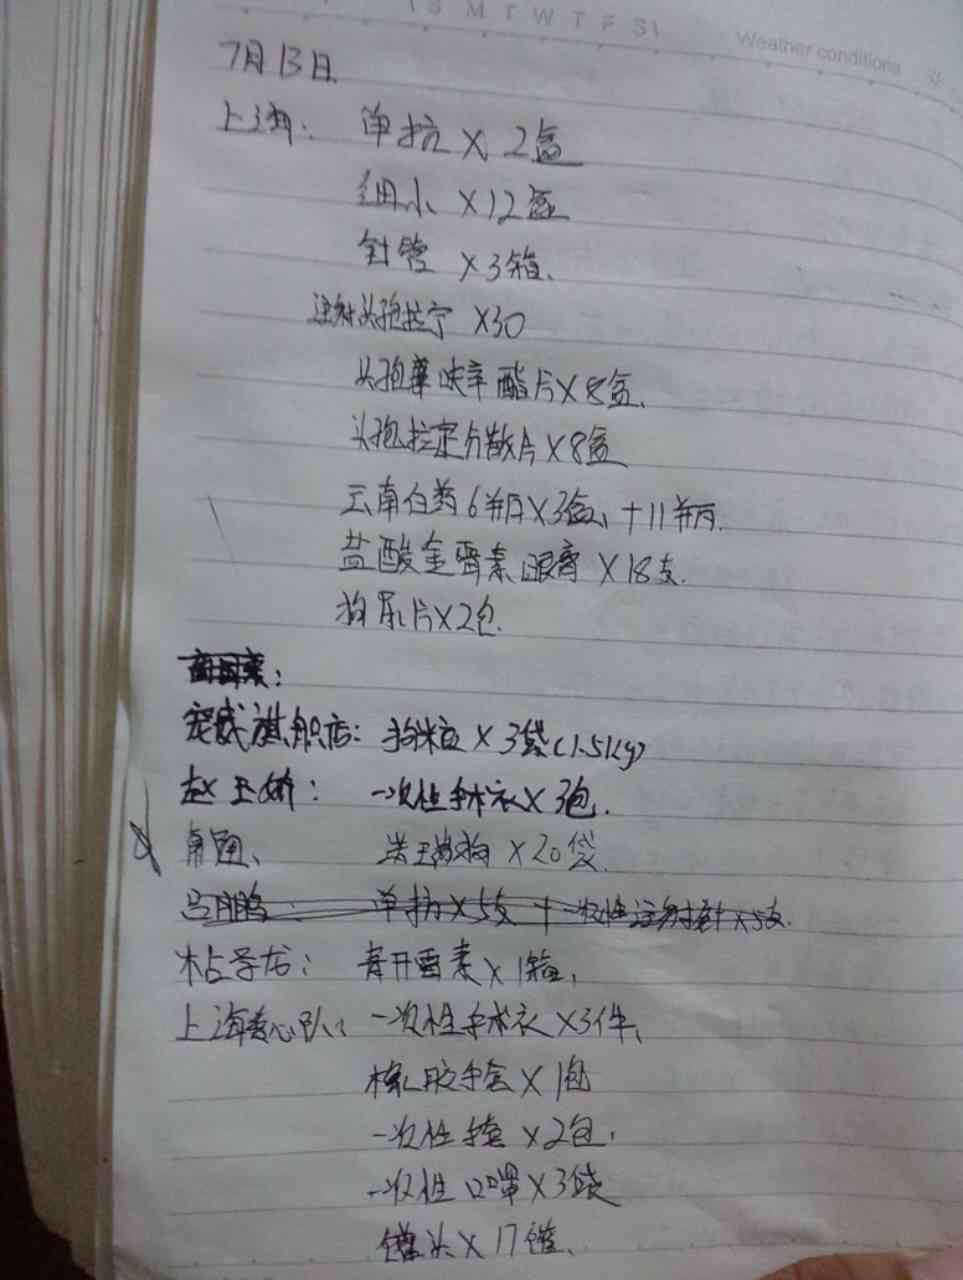 (S M T W T F S)
Weather conditions
7月13日
上海: 单抗 × 2盒
细小 ×12盒
针管 ×3箱、
注射头孢拉宁 ×30
头孢 呋辛酯片×8盒、
头孢拉定分散片×8盒
云南白药6瓶×3盒、+11瓶.
盐酸金霉素眼膏 ×18支.
狗尿片×2包.
宠威旗舰店: 狗粮 × 3袋(1.5kg)
赵玉娇: 一次性手术衣× 3包.
×20袋.
单抗×5支 + 一次性注射针×5支.
青开霉素× 1箱,
上海爱心队、 一次性手术衣 ×3件、
橡胶手套 × 1包
一次性 ×2包,
一次性口罩×3袋
罐头× 17罐、